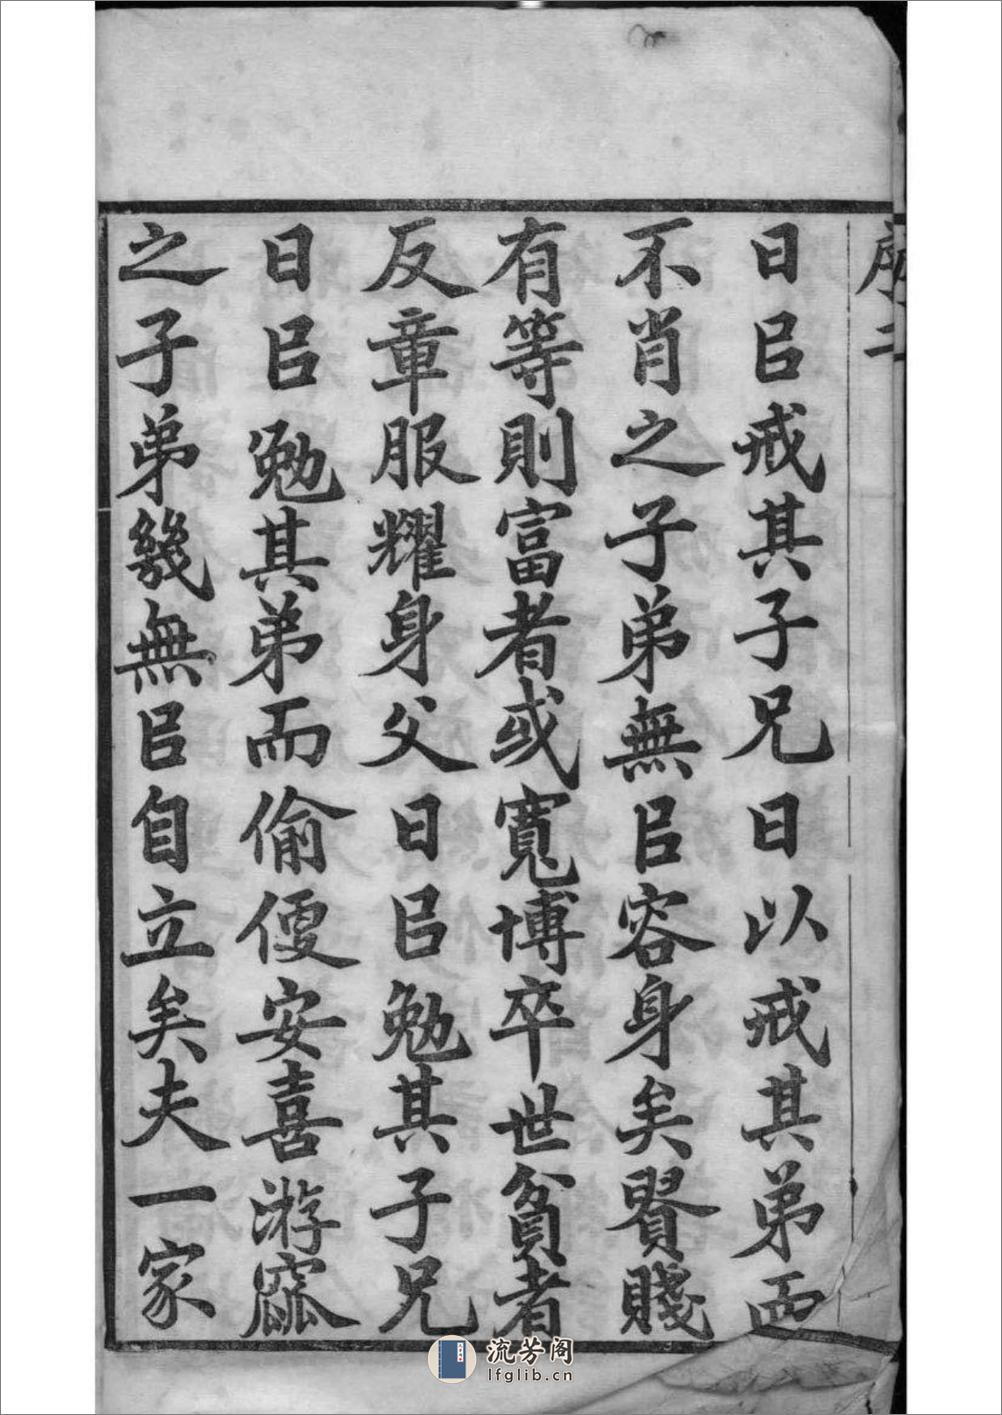 序 二
日㠯戒其子兄日以戒其弟而
不肖之子弟無㠯容身矣賢賤
有等則富者或寬博卒世貧者
反章服耀身父日㠯勉其子兄
日㠯勉其弟而偷㑮安喜游窳
之子弟幾無㠯自立矣夫一家
流芳阁
lfglib.cn